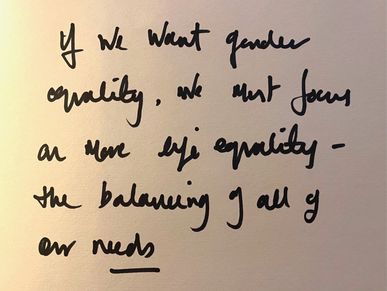 If we want gender
equality, we must focus
on more life equality -
the balancing of all of
our needs